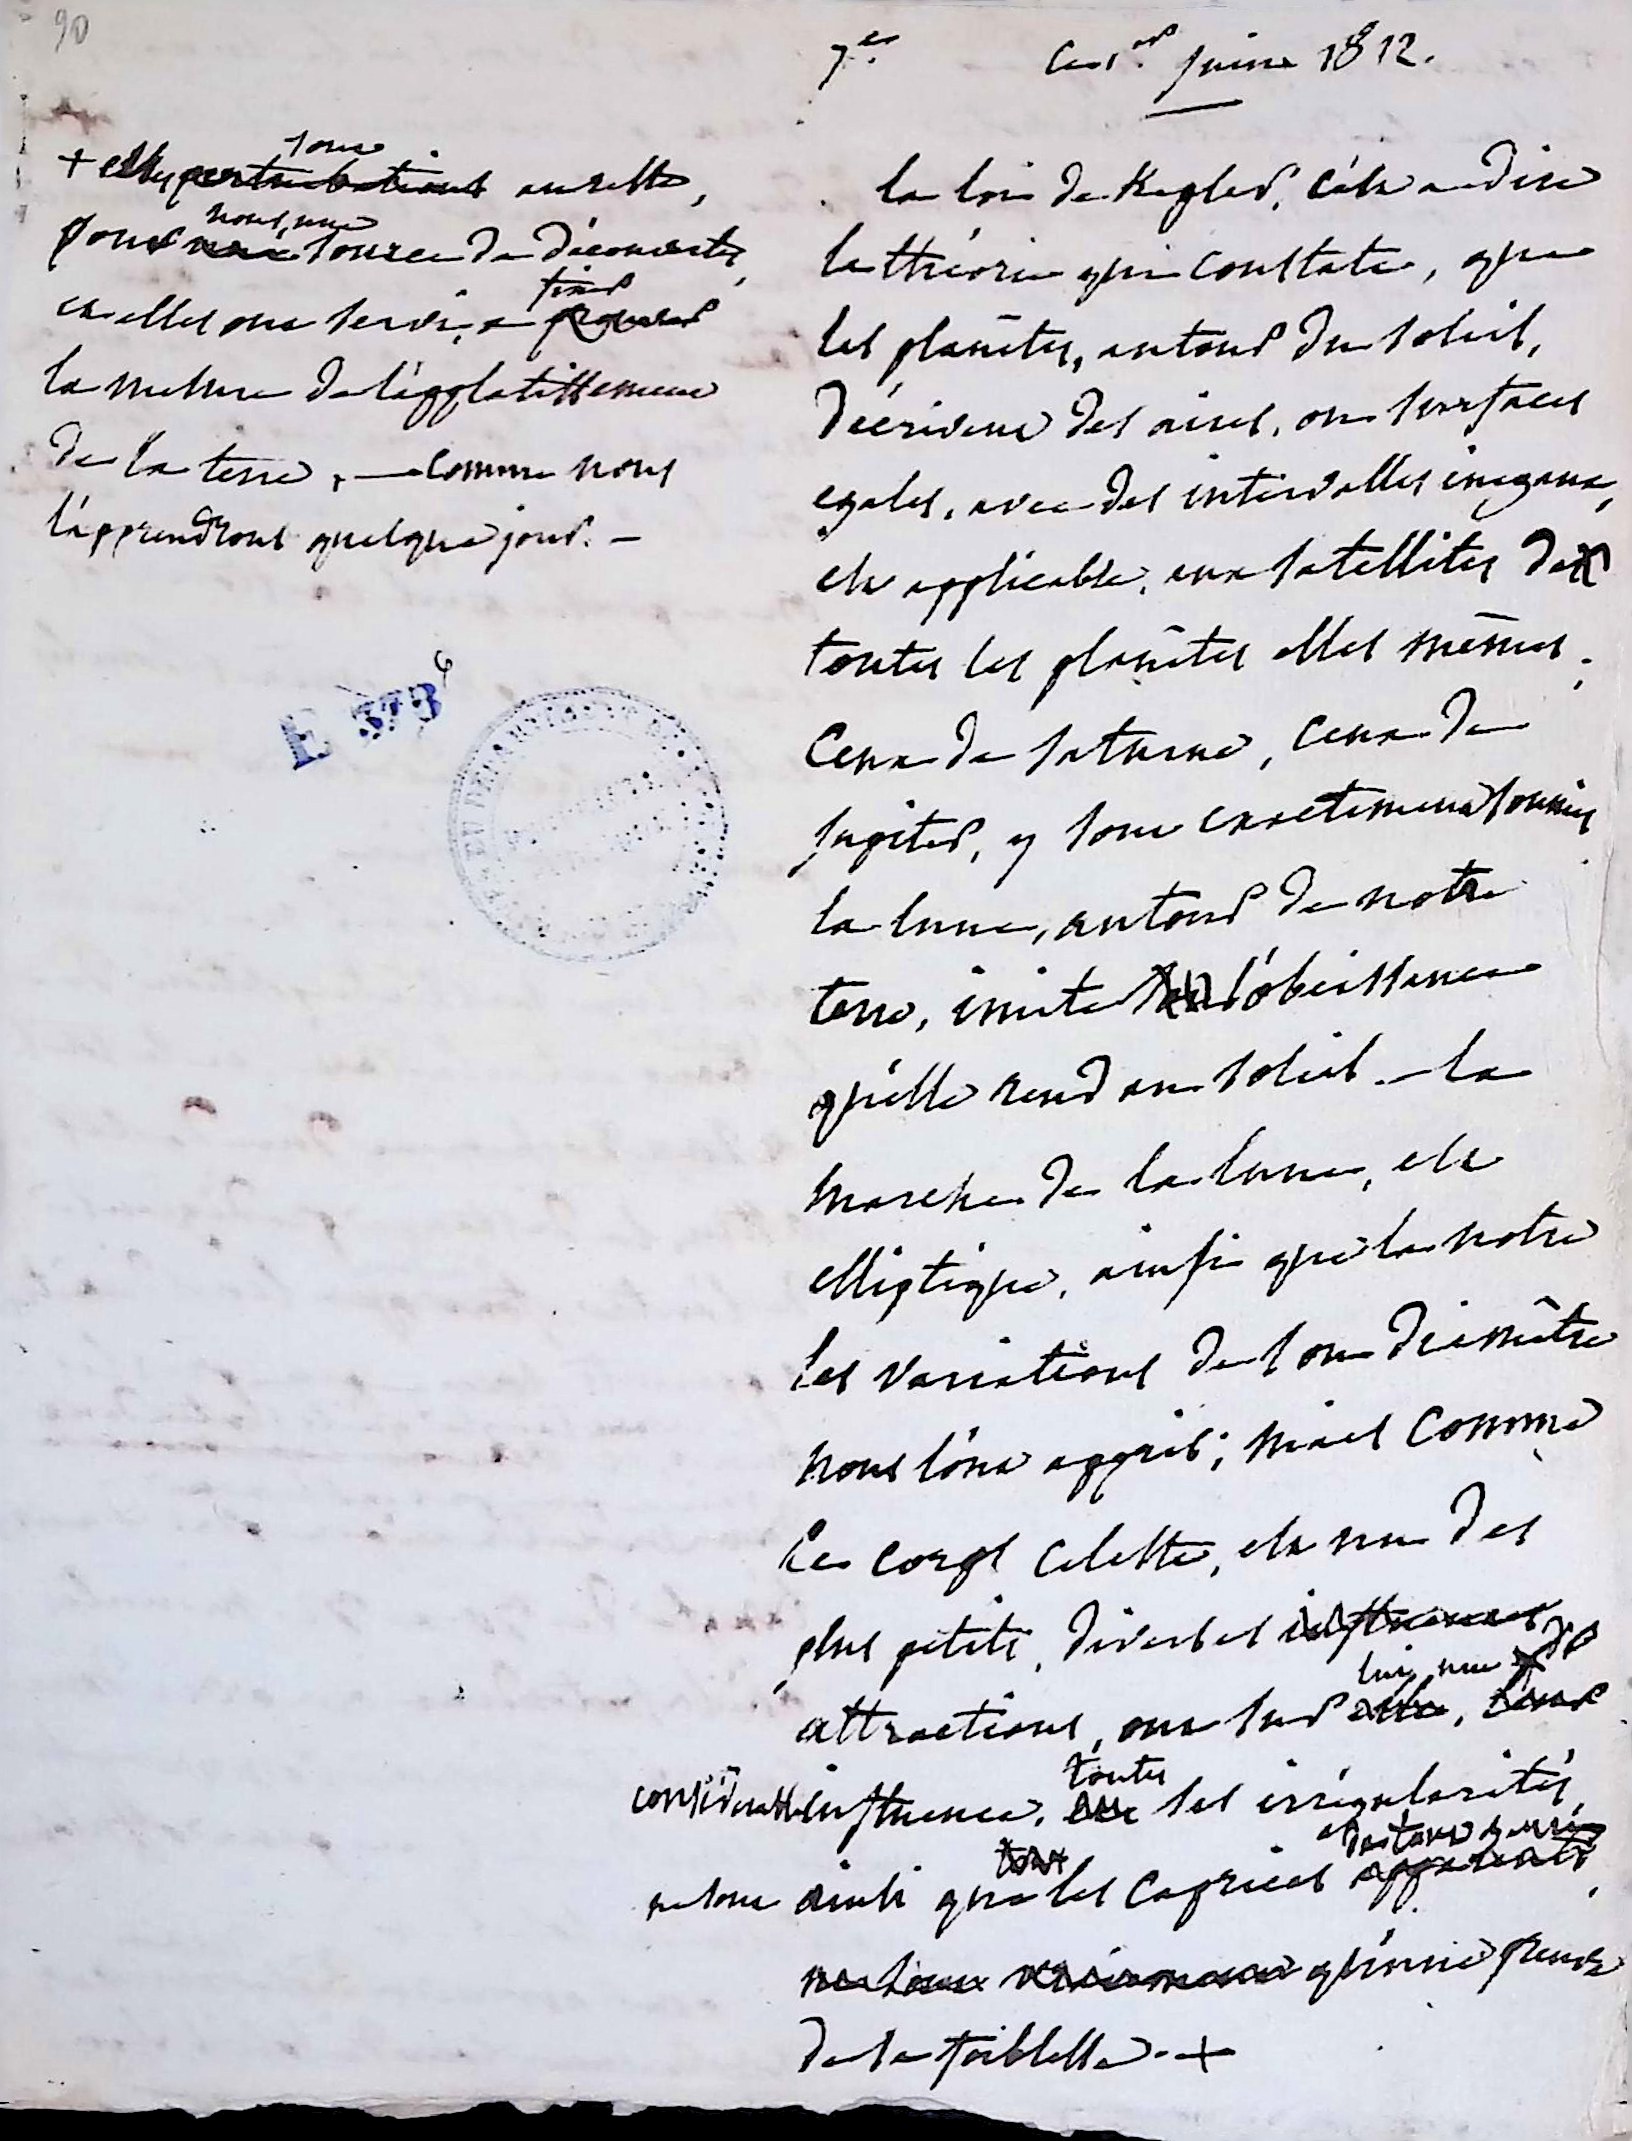 90
7e. Ce 1er juin 1812.
la loi de Kepler, c'est a dire
la théorie qui constate, que
les planêtes, autour du soleil,
décrivent des aires, ou surfaces
egales, avec des intervalles inegaux,
est applicable, aux satellites de
toutes les planêtes elles mêmes;
Ceux de Saturne, Ceux de
Jupiter, y sont exactement soumis
la lune, autour de notre
terre, imite l'obeissance
qu'elle rend au soleil. — la
marche de la lune, est
elliptique, ainsi que la notre
les variations de son diamêtre
nous l'ont appris; mais comme
ce corps celeste, est un des
plus petits, diverses influences
attractions, ont sur elle, lui, une
considerable influence. toutes ses irrégularités,
ne sont ainsi que les caprices apparents,
ne sont vraiment qu'une preuve
de sa foiblesse. +
+ elles perturbations sont au reste,
pour nous, une source de découvertes,
et elles ont servi, a fixer
la mesure de l'applatissement
de la terre, — comme nous
l'apprendrons quelque jour. —
E 378
6